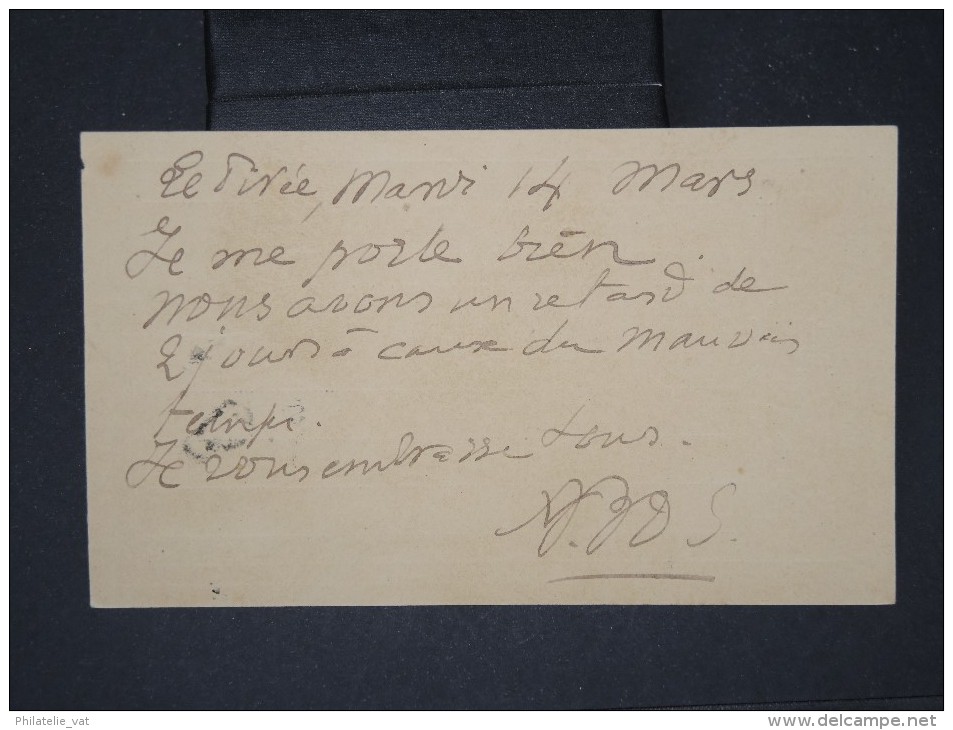 Le Pirée, Mardi 14 Mars
Je me porte bien.
nous avons un retard de
2 jours à cause du mauvais
temps.
Je vous embrasse tous.
Philatelie_vat
www.delcampe.net